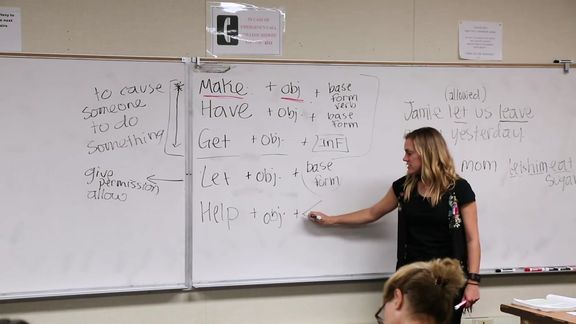 to cause
someone
to do
something
give
permission
allow
Make + obj. + base form verb
Have + obj. + base form
Get + obj. + inf
Let + obj. + base form
Help + obj. +
(allowed)
Jamie let us leave
yesterday.
mom let him eat
sugar
IN CASE OF
EMERGENCY CALL